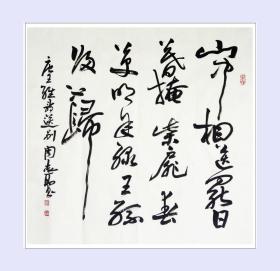 山中相送罷日
暮掩柴扉春
草明年綠王孫
归不歸
唐王維詩送別